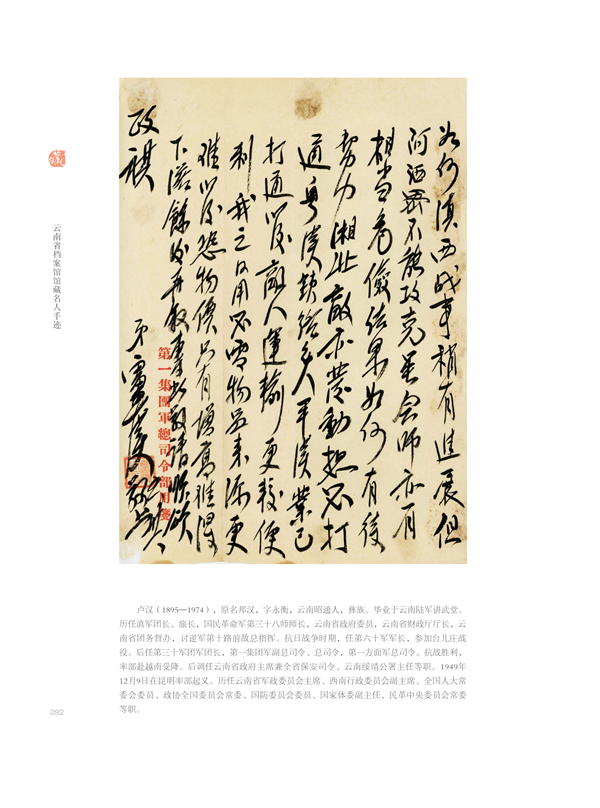 如何滇西战事稍有进展但
不能攻克里会师亦有
相当 结果如何有后
努力湘北敌亦发动想必打
通粤汉铁路 平汉业已
打通以后敌人运输更较便
利我之日用必需物品来源更
难以后 物价只有增高难得
下落余后再叙专此敬请
政祺
弟卢汉
第一集團軍總司令部用箋
藏
云南省档案馆馆藏名人手迹
卢汉（1895—1974），原名邦汉，字永衡，云南昭通人，彝族。毕业于云南陆军讲武堂。
历任滇军团长、旅长，国民革命军第三十八师师长，云南省政府委员，云南省财政厅厅长，云
南省团务督办，讨逆军第十路前敌总指挥。抗日战争时期，任第六十军军长，参加台儿庄战
役。后任第三十军团军团长，第一集团军副总司令、总司令，第一方面军总司令。抗战胜利，
率部赴越南受降。后调任云南省政府主席兼全省保安司令、云南绥靖公署主任等职。1949年
12月9日在昆明率部起义。历任云南省军政委员会主席、西南行政委员会副主席、全国人大常
委会委员、政协全国委员会常委、国防委员会委员、国家体委副主任、民革中央委员会常委
等职。
092